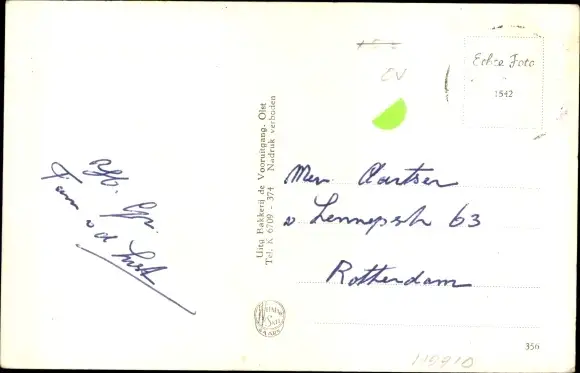 Fam v d
Uitg Bakkerij de Vooruitgang, Olst
Tel. K 6709 - 374 Nadruk verboden
Echte Foto
1542
Mev. Aartsen
v Lennepstr 63
Rotterdam
356